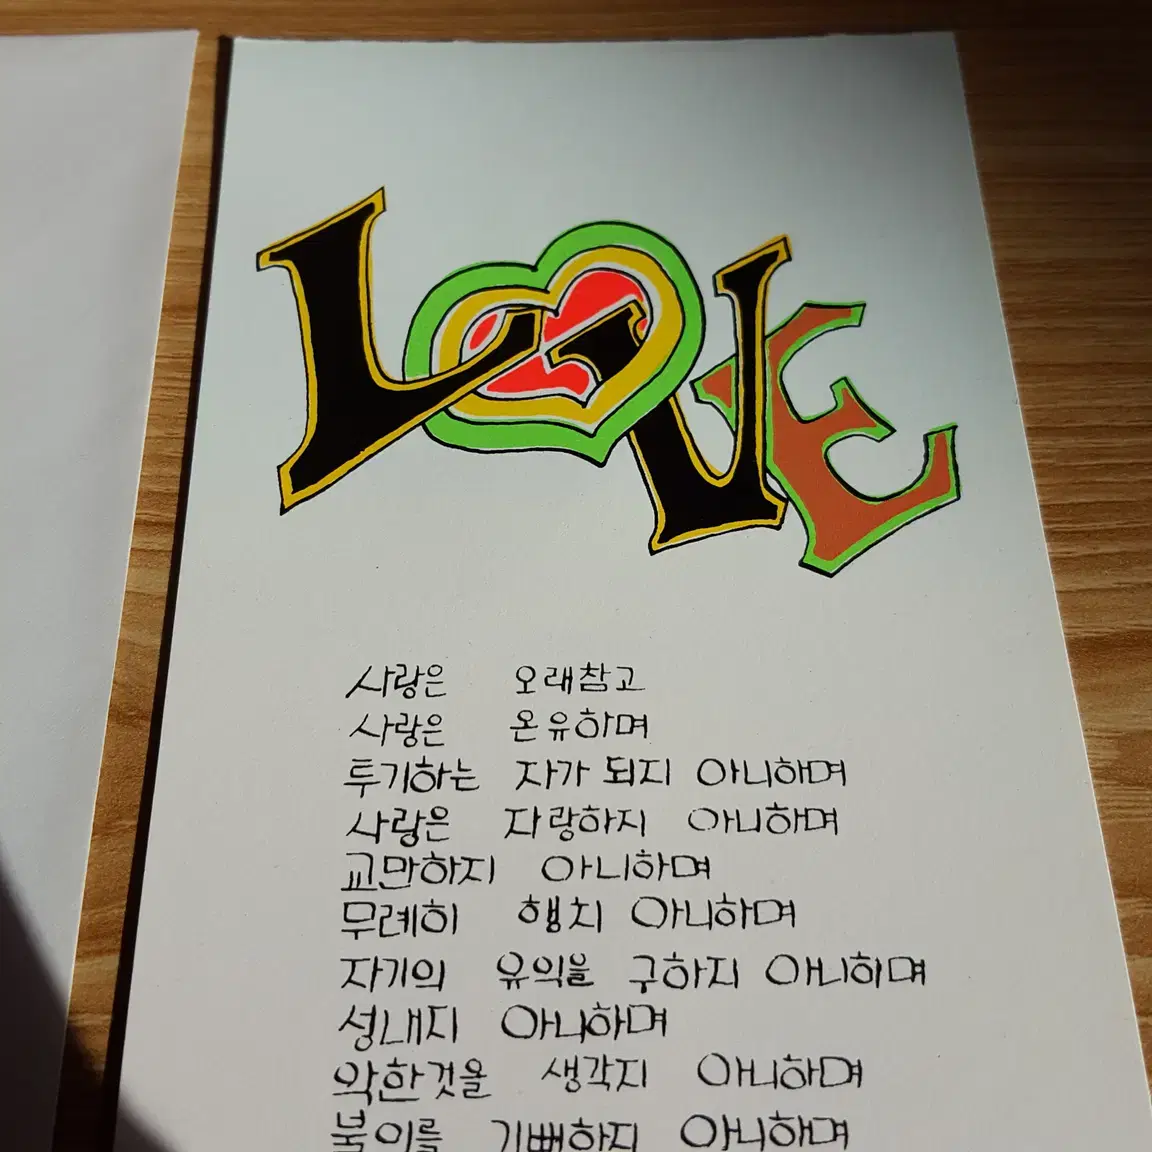 LOVE
사랑은 오래참고
사랑은 온유하며
투기하는 자가 되지 아니하며
사랑은 자랑하지 아니하며
교만하지 아니하며
무례히 행치 아니하며
자기의 유익을 구하지 아니하며
성내지 아니하며
악한것을 생각지 아니하며
불의를 기뻐하지 아니하며